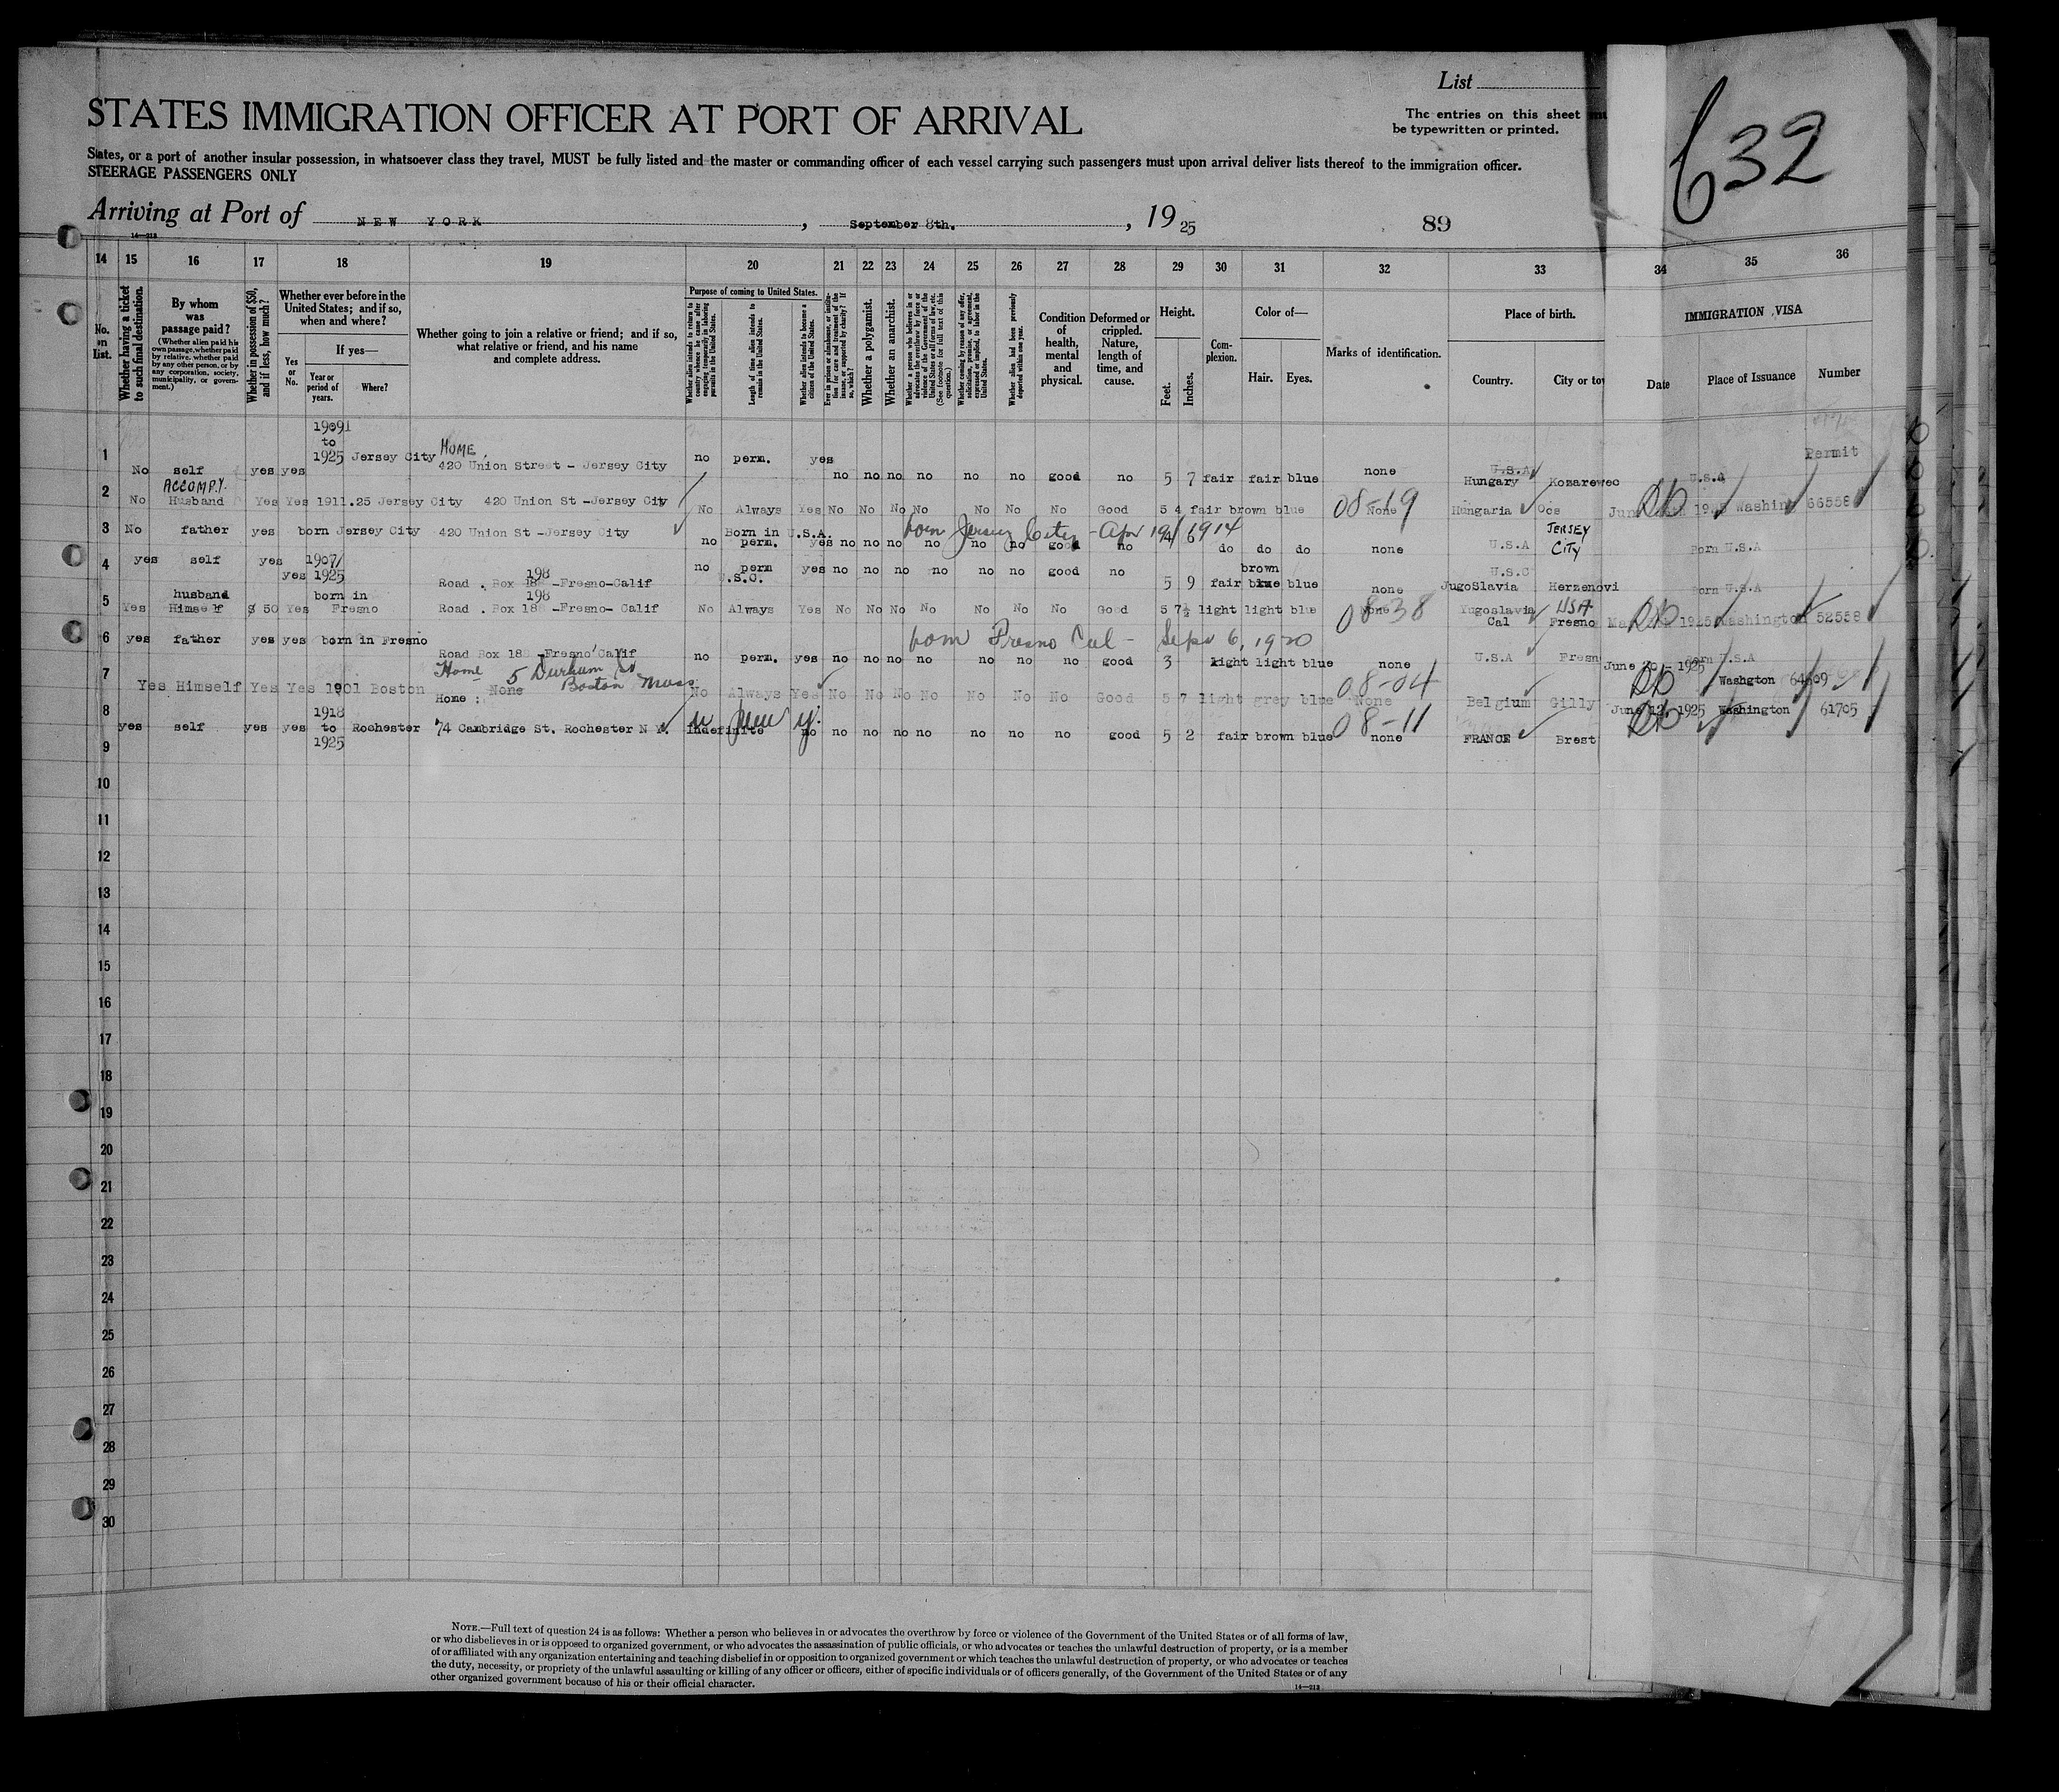 List
STATES IMMIGRATION OFFICER AT PORT OF ARRIVAL
The entries on this sheet
be typewritten or printed.
632
States, or a port of another insular possession, in whatsoever class they travel, MUST be fully listed and the master or commanding officer of each vessel carrying such passengers must upon arrival deliver lists thereof to the immigration officer.
STEERAGE PASSENGERS ONLY
Arriving at Port of NEW YORK, September 8th., 1925 89
14—213
14 15 16 17 18 19 20 21 22 23 24 25 26 27 28 29 30 31 32 33 34 35 36
No. on list.
Whether having a ticket to such final destination.
By whom was passage paid?
(Whether alien paid his own passage, whether paid by relative, whether paid by any other person, or by any corporation, society, municipality, or government.)
Whether in possession of $50, and if less, how much?
Whether ever before in the United States; and if so, when and where?
Yes or No.
If yes—
Year or period of years.
Where?
Whether going to join a relative or friend; and if so, what relative or friend, and his name and complete address.
Purpose of coming to United States.
Whether alien intends to return to country whence he came after engaging temporarily in laboring pursuits in the United States.
Length of time alien intends to remain in the United States.
Whether alien intends to become a citizen of the United States.
Ever in prison or almshouse, or institution for care and treatment of the insane, or supported by charity? If so, which?
Whether a polygamist.
Whether an anarchist.
Whether a person who believes in or advocates the overthrow by force or violence of the Government of the United States or all forms of law, etc. (See footnote for full text of this question.)
Whether coming by reason of any offer, solicitation, promise, or agreement, expressed or implied, to labor in the United States.
Whether alien had been previously deported within one year.
Condition of health, mental and physical.
Deformed or crippled. Nature, length of time, and cause.
Height.
Feet.
Inches.
Complexion.
Color of—
Hair. Eyes.
Marks of identification.
Place of birth.
Country.
City or tow
IMMIGRATION VISA
Date
Place of Issuance
Number
1 No self yes yes 1909 to 1925 Jersey City HOME 420 Union Street - Jersey City no perm. yes no no no no no no good no 5 7 fair fair blue none U.S.A Hungary Kozarewec U.S.A Permit
2 No ACCOMPY. Husband Yes Yes 1911.25 Jersey City 420 Union St -Jersey City No Always Yes No No No No No No No Good 5 4 fair brown blue None 08-19 Hungaria Ocs Washing 66558
3 No father yes born Jersey City 420 Union St -Jersey City Born in U.S.A. no perm. yes no no no no no no good no born Jersey City - Apr 1914 do do do none U.S.A JERSEY CITY Born U.S.A
4 yes self yes yes 1907/ 1925 198 Road . Box -Fresno-Calif no perm. U.S.C. yes no no no no no no good no 5 9 fair brown blue none U.S.C JugoSlavia Herzenovi Born U.S.A
5 Yes husband Himself $ 50 Yes born in Fresno 198 Road . Box 188 -Fresno- Calif No Always Yes No No No No No No No Good 5 7½ light light blue None 0838 Yugoslavia USA 1925 Washington 52558
6 yes father yes yes born in Fresno Road Box 188 -Fresno Calif no perm. yes no no no no no no no good 3 light light blue none born Fresno Cal - Sept 6, 1920 U.S.A Cal Fresno Fresn Born U.S.A
7 Yes Himself Yes Yes 1901 Boston Home 5 Durham St Boston Mass Home : None No Always Yes No No No No No No No Good 5 7 light grey blue None 08-04 Belgium Gilly June 20 - 1925 Washgton 64609
8 yes self yes yes 1918 to 1925 Rochester 74 Cambridge St. Rochester N Y. indefinite no no no no no no no no good 5 2 fair brown blue none 08-11 FRANCE Brest June 12, 1925 Washington 61705
9
10
11
12
13
14
15
16
17
18
19
20
21
22
23
24
25
26
27
28
29
30
NOTE.—Full text of question 24 is as follows: Whether a person who believes in or advocates the overthrow by force or violence of the Government of the United States or of all forms of law,
or who disbelieves in or is opposed to organized government, or who advocates the assassination of public officials, or who advocates or teaches the unlawful destruction of property, or is a member
of or affiliated with any organization entertaining and teaching disbelief in or opposition to organized government or which teaches the unlawful destruction of property, or who advocates or teaches
the duty, necessity, or propriety of the unlawful assaulting or killing of any officer or officers, either of specific individuals or of officers generally, of the Government of the United States or of any
other organized government because of his or their official character.
14—213